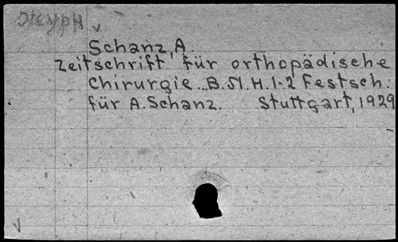 Schanz, A.
Zeitschrift für orthopädische
Chirurgie.. B. 51. H. 1-2 Festsch.
für A. Schanz. Stuttgart, 1929